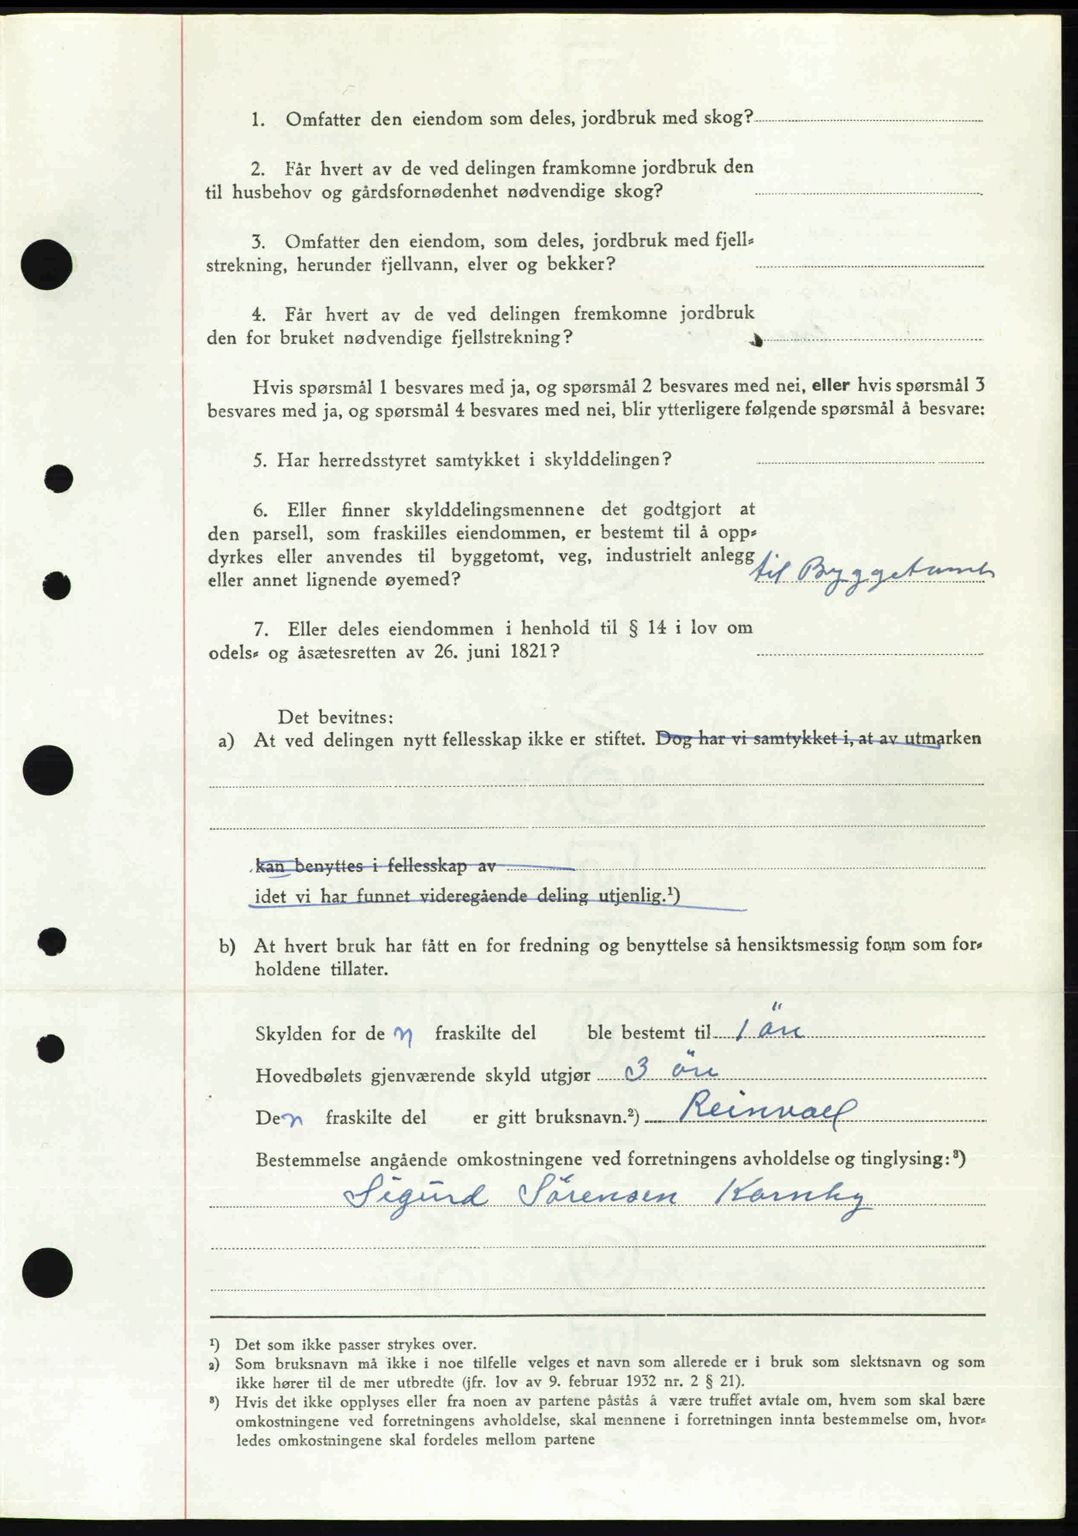 1. Omfatter den eiendom som deles, jordbruk med skog?
2. Får hvert av de ved delingen framkomne jordbruk den
til husbehov og gårdsfornødenhet nødvendige skog?
3. Omfatter den eiendom, som deles, jordbruk med fjell-
strekning, herunder fjellvann, elver og bekker?
4. Får hvert av de ved delingen fremkomne jordbruk
den for bruket nødvendige fjellstrekning?
Hvis spørsmål 1 besvares med ja, og spørsmål 2 besvares med nei, eller hvis spørsmål 3
besvares med ja, og spørsmål 4 besvares med nei, blir ytterligere følgende spørsmål å besvare:
5. Har herredsstyret samtykket i skylddelingen?
6. Eller finner skylddelingsmennene det godtgjort at
den parsell, som fraskilles eiendommen, er bestemt til å opp-
dyrkes eller anvendes til byggetomt, veg, industrielt anlegg
eller annet lignende øyemed? til Byggetomt
7. Eller deles eiendommen i henhold til § 14 i lov om
odels- og åsætesretten av 26. juni 1821?
Det bevitnes:
a) At ved delingen nytt fellesskap ikke er stiftet. Dog har vi samtykket i, at av utmarken
kan benyttes i fellesskap av
idet vi har funnet videregående deling utjenlig.¹)
b) At hvert bruk har fått en for fredning og benyttelse så hensiktsmessig form som for-
holdene tillater.
Skylden for de n fraskilte del ble bestemt til 1 öre
Hovedbølets gjenværende skyld utgjør 3 öre
De n fraskilte del er gitt bruksnavn.²) Reinvoll
Bestemmelse angående omkostningene ved forretningens avholdelse og tinglysing:³)
Sigurd Sörensen
¹) Det som ikke passer strykes over.
²) Som bruksnavn må ikke i noe tilfelle velges et navn som allerede er i bruk som slektsnavn og som
ikke hører til de mer utbredte (jfr. lov av 9. februar 1932 nr. 2 § 21).
³) Hvis det ikke opplyses eller fra noen av partene påstås å være truffet avtale om, hvem som skal bære
omkostningene ved forretningens avholdelse, skal mennene i forretningen innta bestemmelse om, hvor-
ledes omkostningene skal fordeles mellom partene